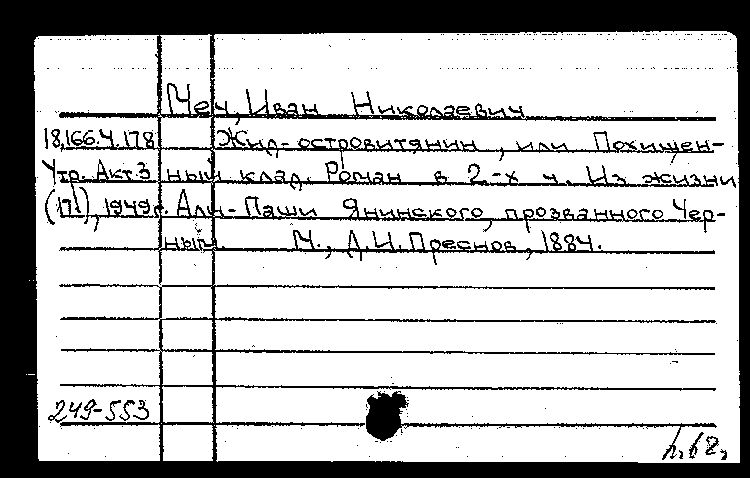 Меч, Иван Николаевич
18.166.4.178 Жид-островитянин, или Похищен-
Утр. Акт 3 ный клад. Роман в 2-х ч. Из жизни
(171), 1949г. Али-Паши Янинского, прозванного Чер-
ный. М., Д.И. Преснов, 1884.
249-553